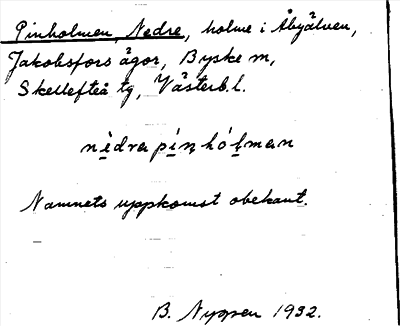 Pinholmen, Nedre, holme i Åbyälven,
Jakobsfors ägor, Byske sn,
Skellefteå tg, Västerb. l.
nèdra pín hólman
Namnets uppkomst obekant.
B. Nygren 1932.